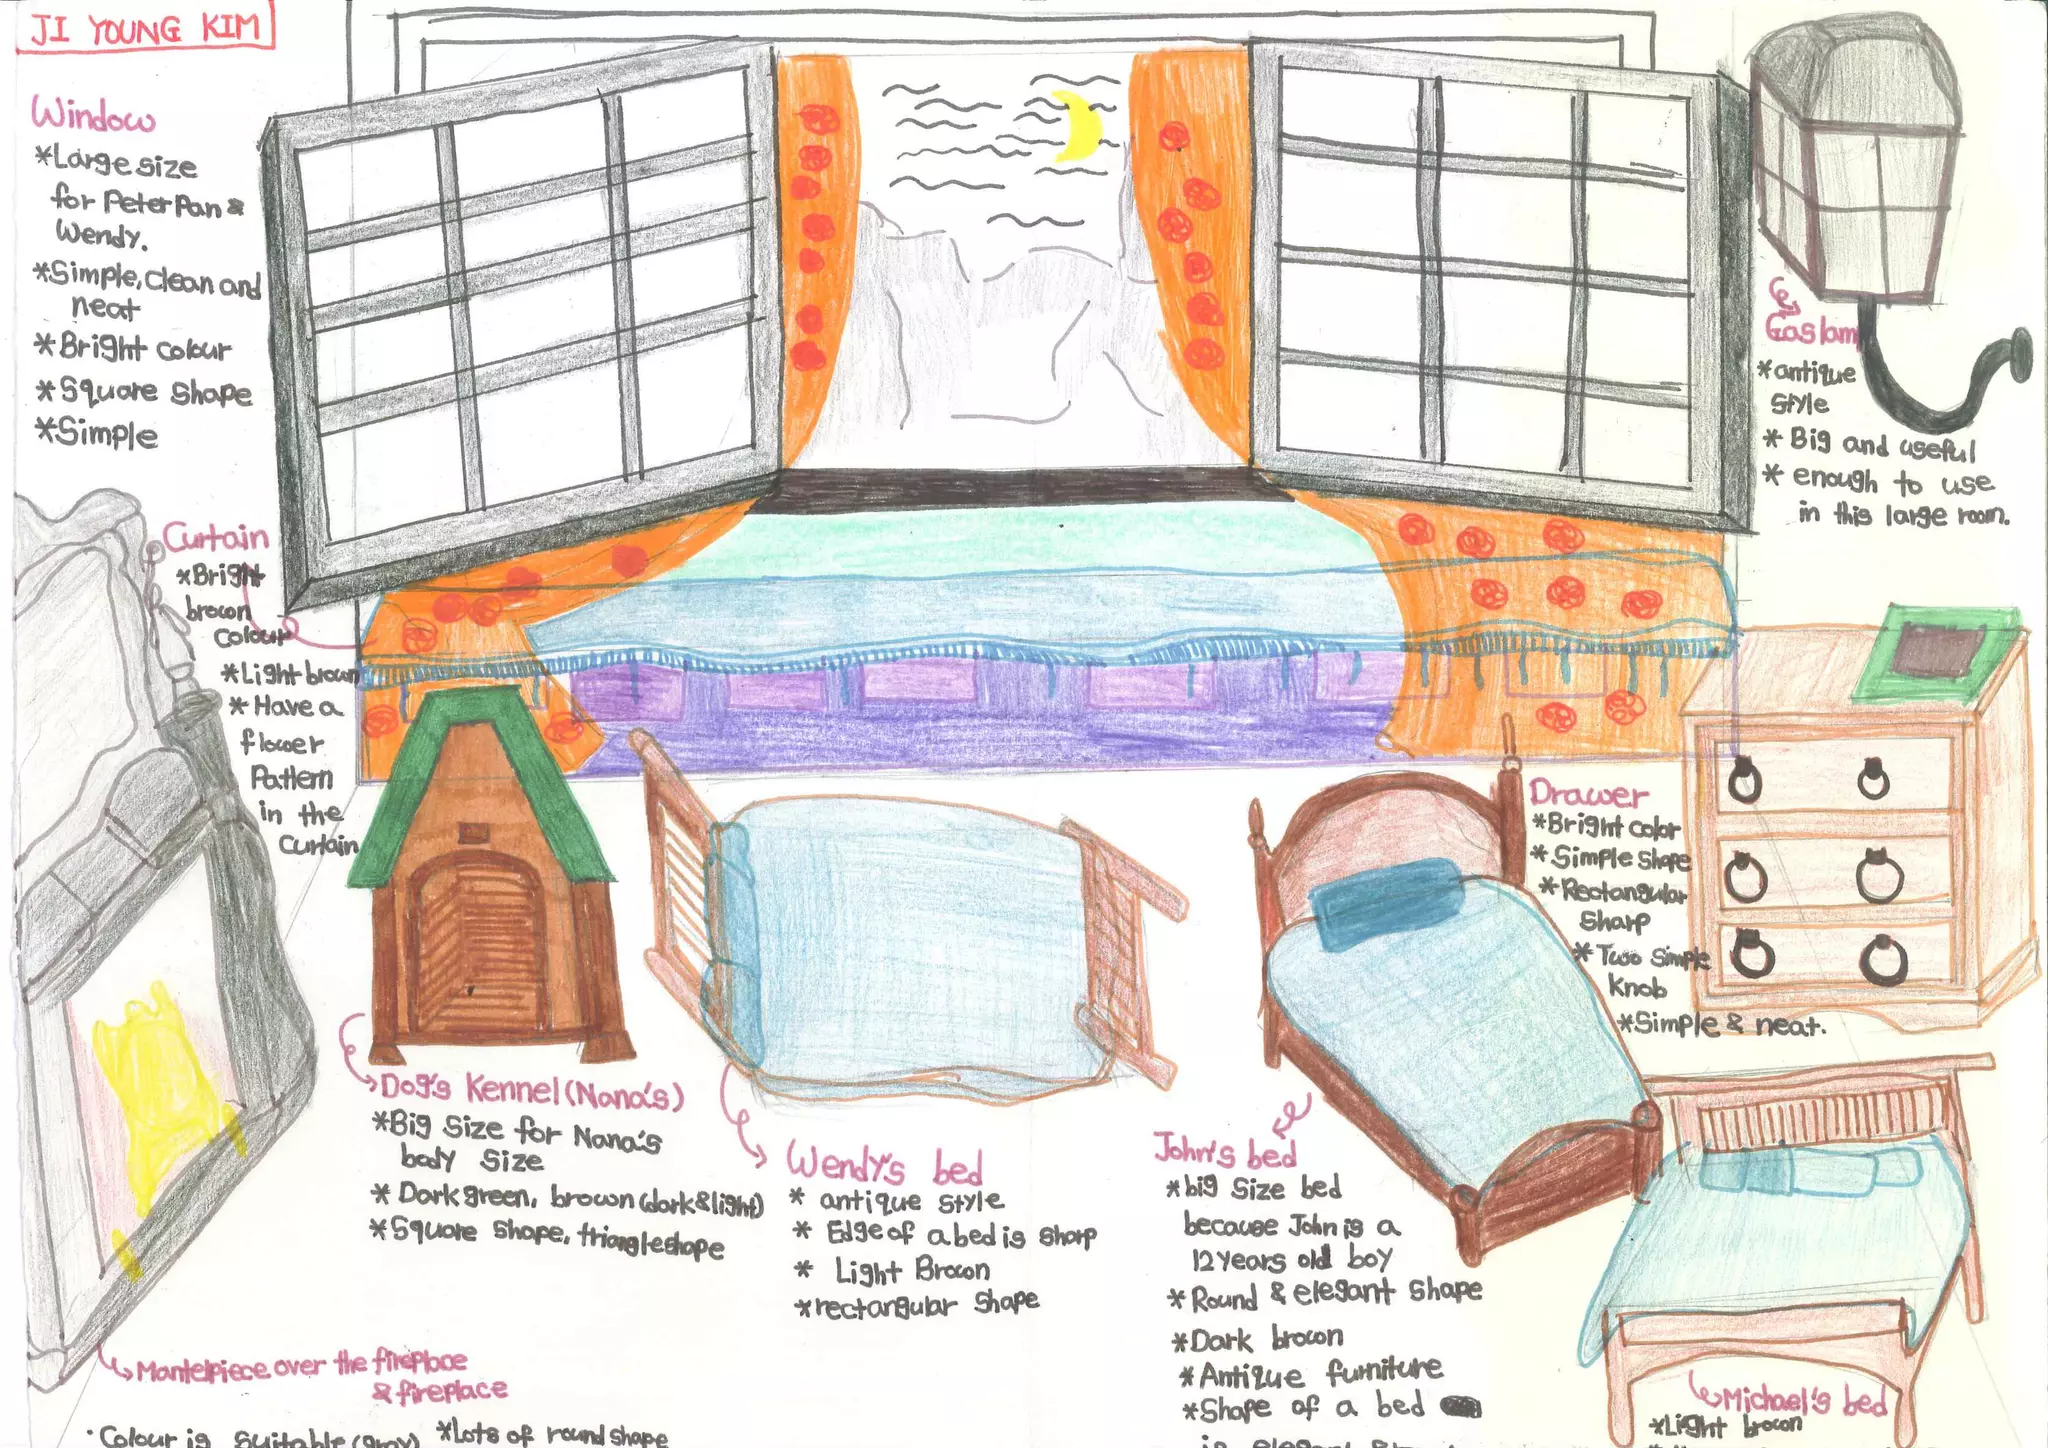 JI YOUNG KIM
Window
*Large size
for Peter Pan &
Wendy.
*Simple, clean and
neat
*Bright colour
*Square shape
*Simple
Curtain
*Bright
brown
colour
*Light brown
* Have a
flower
Pattern
in the
curtain
Gaslam
*antique
style
* Big and useful
* enough to use
in this large room.
Drawer
*Bright color
* Simple shape
*Rectangular
sharp
* Two simple
knob
*Simple & neat.
Dog's Kennel (Nana's)
*Big size for Nana's
body size
* Dark green, brown (dark & light)
*Square shape, triangle shape
Wendy's bed
* antique style
* Edge of a bed is sharp
* Light Brown
*rectangular shape
John's bed
*big size bed
because John is a
12 years old boy
*Round & elegant shape
*Dark brown
*Antique furniture
*Shape of a bed
is elegant
Michael's bed
*Light brown
Mantelpiece over the fireplace
& fireplace
· Colour is suitable (gray)
*Lots of round shape